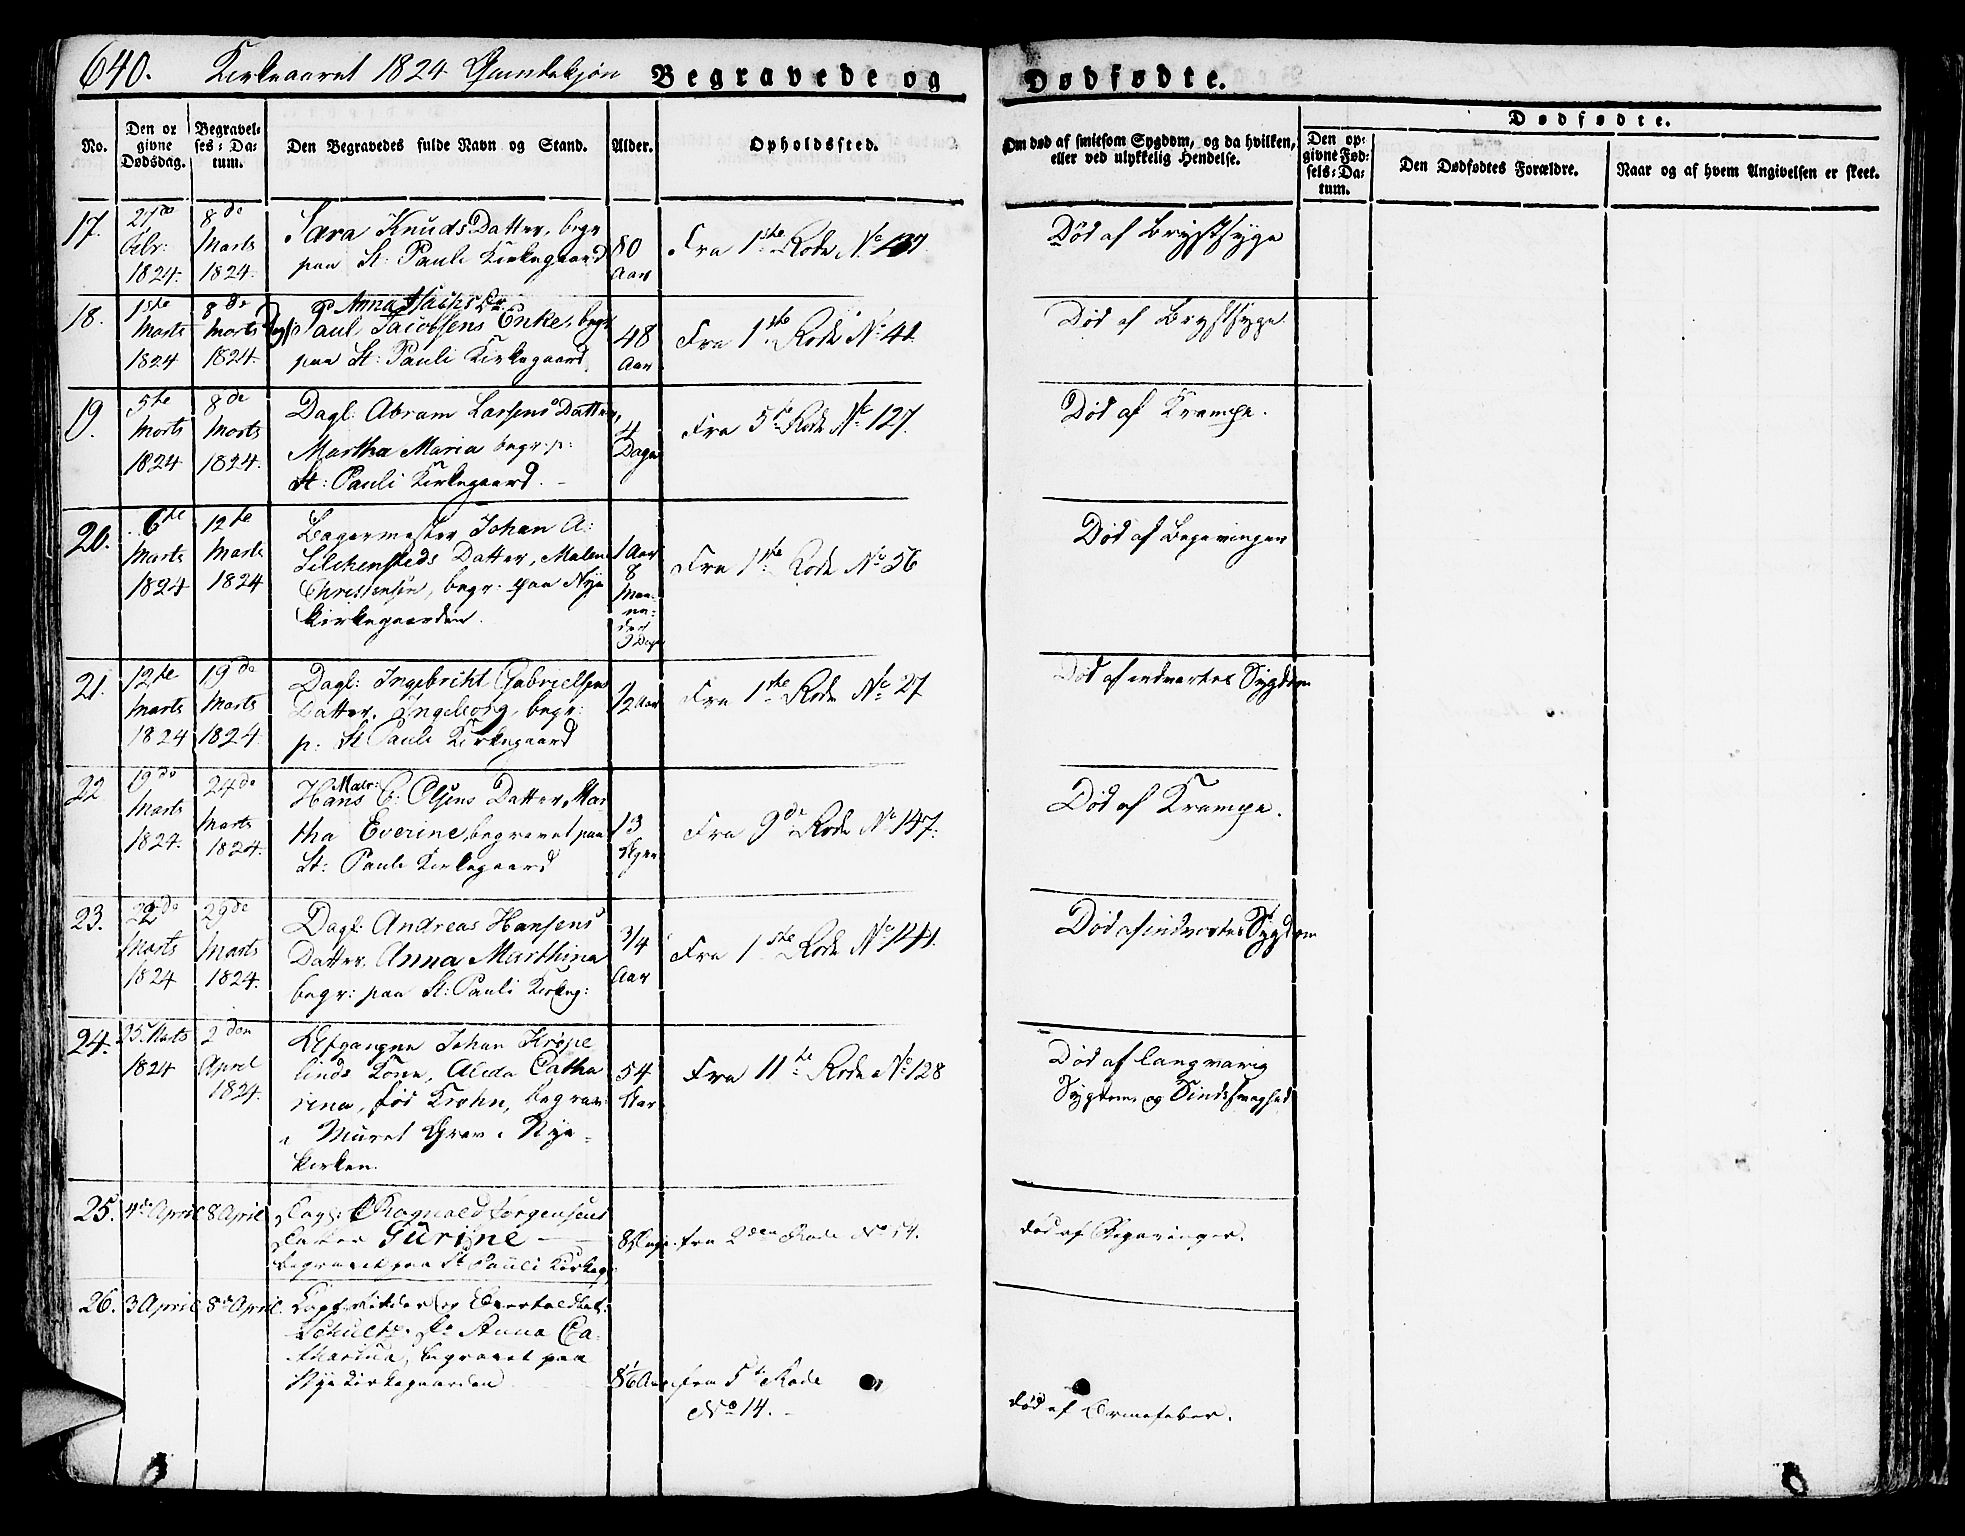 640. Kirkeaaret 1824 Qvindekjøn Begravede og Dødfødte.
No.
Den opgivne Dødsdag.
Begravelses-Datum.
Den Begravedes fulde Navn og Stand.
Alder.
Opholdssted.
Om død af smitsom Sygdom, og da hvilken, eller ved ulykkelig Hendelse.
Dødfødte.
Den opgivne Fødsels-Datum.
Den Dødfødtes Forældre.
Naar og af hvem Angivelsen er skeet.
17. 27de Febr: 1824. 8de Marts 1824.
Sara Knuds Datter, begr
paa St: Pauli Kirkegaard
80 Aar
Fra 1ste Rode No 137
Død af Brystsyge
18. 1ste Marts 1824 8de Marts 1824.
Anna
Paul Jacobsens Enke, begr
paa St: Pauli Kirkegaard
48 Aar
Fra 1ste Rode No 41.
Død af Brystsyge
19. 5te Marts 1824 8de Marts 1824.
Dagl: Abram Larsens Datter,
Martha Maria begr: p:
St: Pauli Kirkegaard.
4 Dage
Fra 5te Rode No 127.
Død af Krampe.
20. 6te Marts 1824 12te Marts 1824
Bagermester Johan A:
Datter, Malene
Christensen, begr: paa Nye
kirkegaarden.
1 Aar 8 Maaneder 9 Dage
Fra 1ste Rode No 56
Død af Begavingen
21. 12te Marts 1824 19de Marts 1824.
Dagl: Ingebricht Gabrielsens
Datter, Ingeborg, begr:
p: St Pauli Kirkegaard
1/2 Aar
Fra 1ste Rode No 27
Død af indvortes Sygdom
22 19de Marts 1824. 24de Marts 1824.
Matr:
Hans C: Olsens Datter, Mar
tha Everine, begravet paa
St: Pauli Kirkegaard
13
Fra 9de Rode No 147.
Død af Krampe.
23. 22de Marts 1824 29de Marts 1824.
Dagl: Andreas Hansens
Datter, Anna Marthina
begr: paa St: Pauli Kirkeg:
3/4 Aar
Fra 1ste Rode No 141.
Død af indvortes Sygdom
24. 25 Marts 1824 2den April 1824.
Afgangne Johan Krøpe
linds Kone, Alida Catha
rina, fød Krohn, begrav:
i Muret Grav i Nye-
kirken.
54 Aar
Fra 11te Rode No 128
Død af langvarig
Sygdom og Sindssvaghed
25. 4de April 8 April
Dagl: Ragnald Jørgensens
Datter Gurine
begravet paa St Pauli Kirkeg
8 Dage
fra 2den Rode No 54.
død af Begavinger.
26. 3 April 8de April.
Schultz Anna Ca-
tharina, begravet paa
Nye Kirkegaarden
8 1/6 Aar
fra 5te Rode
No 14.
død af Ormefeber.